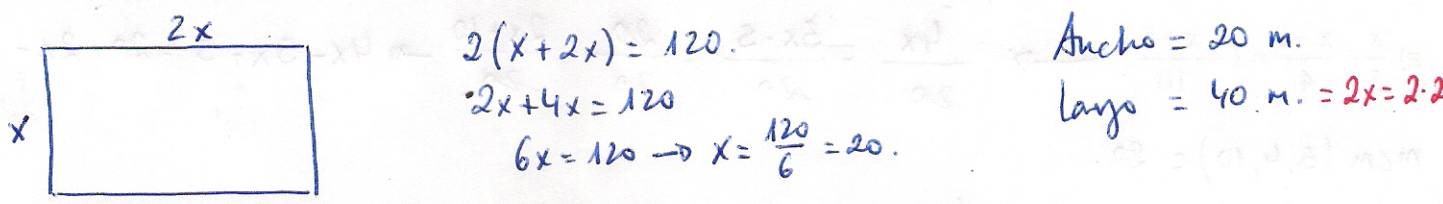 2x
x
2(x+2x) = 120.
2x+4x = 120
6x = 120 → x = 120/6 = 20.
Ancho = 20 m.
Largo = 40 m. = 2x = 2·2